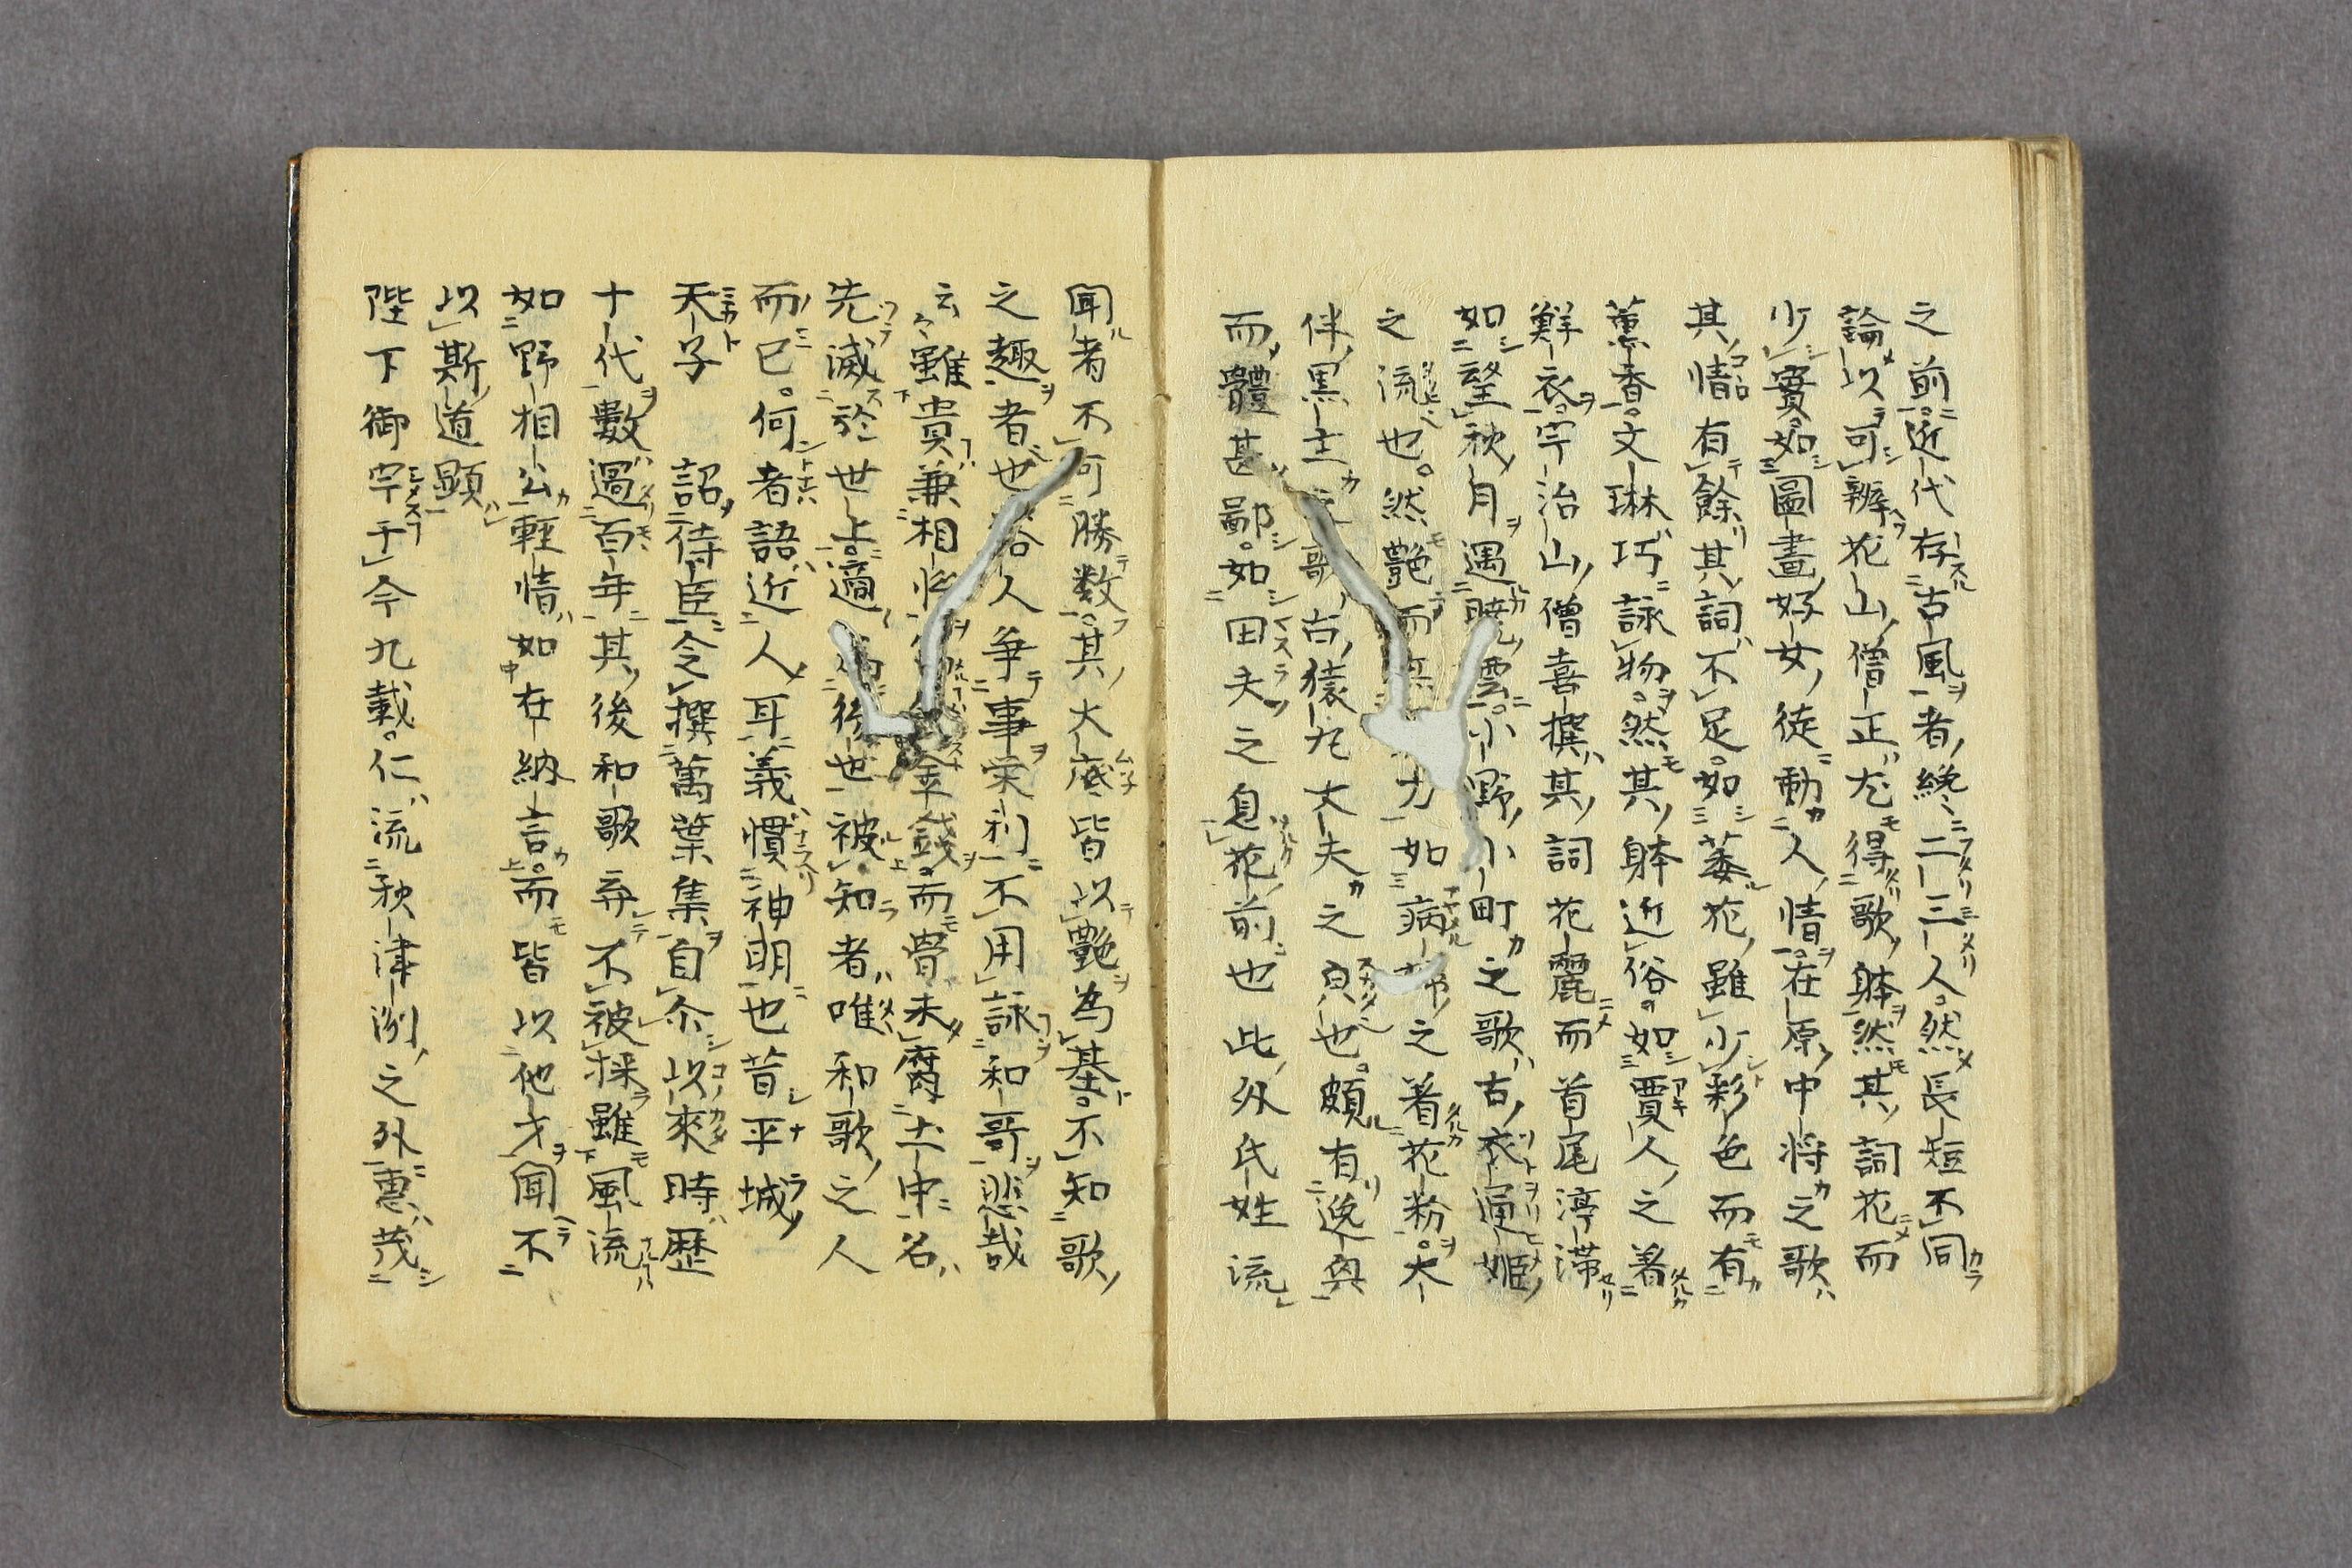 之前近代存古風者纔二三人然長短不同
論以可辨花山僧正尤得歌躰然其詞花而
少實如圖畫好女徒動人情在原中将之歌
其情有餘其詞不足如萎花雖少彩色而有
薫香文琳巧詠物然其躰近俗如賈人之着
鮮衣宇治山僧喜撰其詞花麗而首尾渟滞
如望秋月遇暁雲小野小町之歌古衣通姫
之流也然艶而無力如病婦之着花粉大
伴黒主之歌古猿丸大夫之也頗有逸興
而體甚鄙如田夫之息花前也此外氏姓流
聞者不可勝数其大底皆以艶為基不知歌
之趣者也俗人争事栄利不用詠和哥悲哉
云々雖貴兼相将金錢而骨未腐土中名
先滅於世上適為後世被知者唯和歌之人
而已何者語近人耳義慣神明也昔平城
天子 詔侍臣令撰萬葉集自尒以來時歴
十代數過百年其後和歌弃不被採雖風流
如野相公輕情如在納言而皆以他才聞不
以斯道顕
陛下御宇于今九載仁流秋津洲之外惠茂